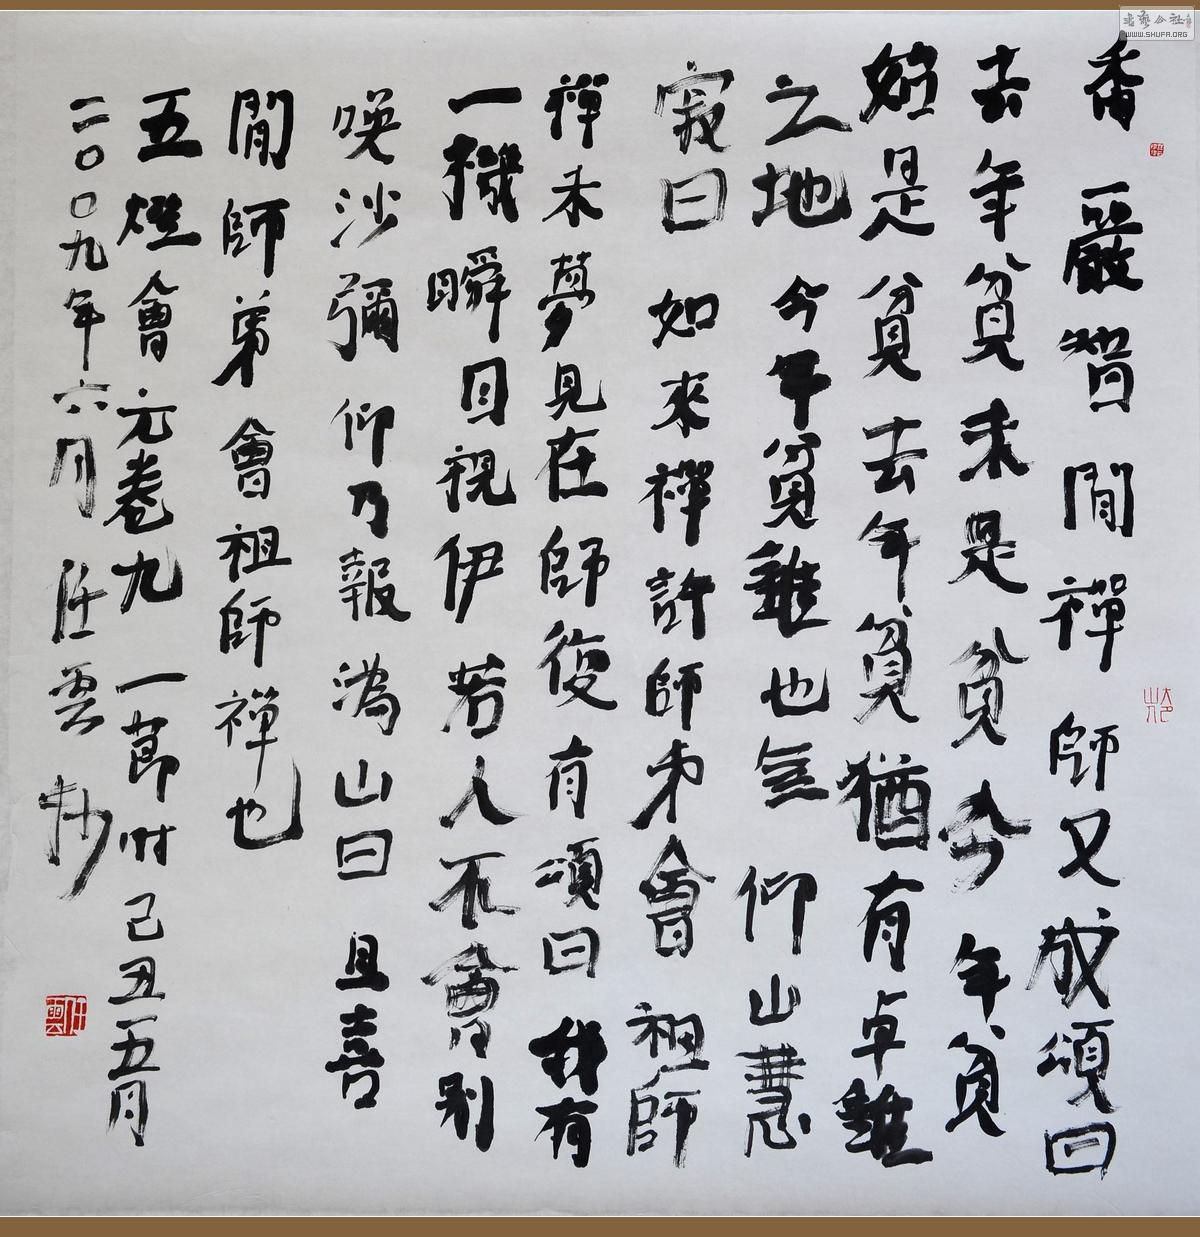 香嚴智閒禪師又成頌曰
去年貧未是貧今年貧
始是貧去年貧猶有卓錐
之地今年貧錐也無仰山慧
寂曰如來禪許師弟會祖師
禪未夢見在師復有頌曰我有
一機瞬目視伊若人不會別
喚沙彌仰乃報溈山曰且喜
閒師弟會祖師禪也
五燈會元卷九一節時己丑五月
二〇〇九年六月任雲抄
任雲
書藝公社
WWW.SHUFA.ORG